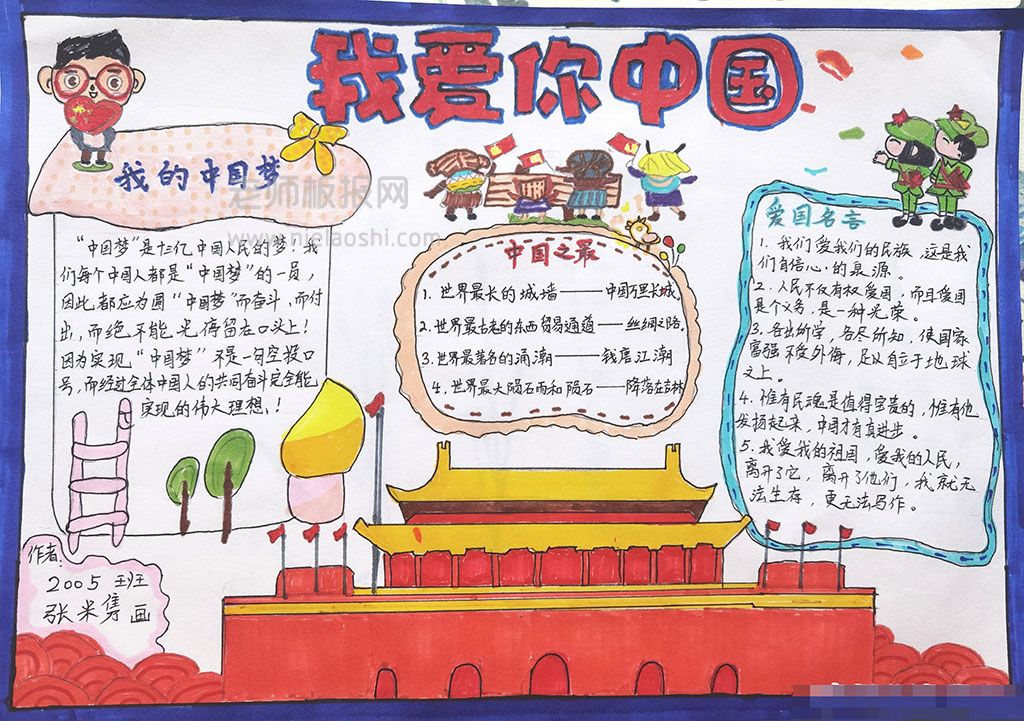 我爱你中国
我的中国梦
老师板报网
www.nielaoshi.com
"中国梦"是十三亿中国人民的梦!我
们每个中国人都是"中国梦"的一员,
因此,都应为圆"中国梦"而奋斗,而付
出,而绝不能光停留在口头上!
因为实现"中国梦"不是一句空投口
号,而经过全体中国人的共同奋斗完全能
实现的伟大理想!
中国之最
1. 世界最长的城墙——中国万里长城。
2. 世界最古老的东西贸易通道——丝绸之路。
3. 世界最著名的涌潮——钱唐江潮
4. 世界最大陨石雨和陨石——降落在吉林
爱国名言
1. 我们爱我们的民族,这是我
们自信心的泉源。
2. 人民不仅有权爱国,而且爱国
是个义务,是一种光荣。
3. 各出所学,各尽所知,使国家
富强不受外侮,足以自立于地球
之上。
4. 惟有民魂是值得宝贵的,惟有他
发扬起来,中国才有真进步。
5. 我爱我的祖国,爱我的人民,
离开了它,离开了他们,我就无
法生存,更无法写作。
作者:
2005班
张米隽画